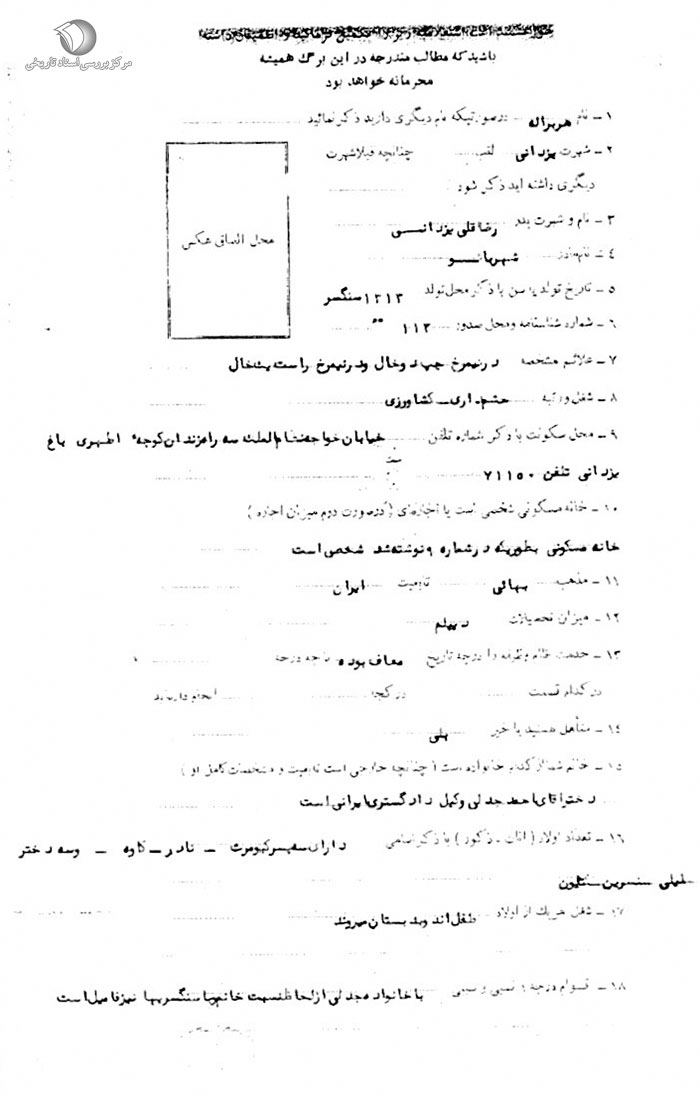 مرکز بررسی اسناد تاریخی
باشید که مطالب مندرجه در این برگ همیشه
محرمانه خواهد بود
۱ ـ نام هژبراله در صورتیکه نام دیگری دارید ذکر نمائید
۲ ـ شهرت یزدانی لقب چنانچه قبلا شهرت
دیگری داشته اید ذکر شود
محل الصاق عکس
۳ ـ نام و شهرت پدر رضا قلی یزدانی
۴ ـ نام مادر شهربانو
۵ ـ تاریخ تولد یا سن با ذکر محل تولد ۱۳۱۳ سنگسر
۶ ـ شماره شناسنامه و محل صدور ۱۱۲ "
۷ ـ علائم مشخصه در نیمرخ چپ دو خال و در نیمرخ راست یکخال
۸ ـ شغل و رتبه حشم داری ـ کشاورزی
۹ ـ محل سکونت با ذکر شماره تلفن خیابان خواجه نظام الملک سه راه زندان کوچه اطهری باغ
یزدانی تلفن ۷۱۱۵۰
۱۰ ـ خانه مسکونی شخصی است یا اجاره‌ای (در صورت دوم میزان اجاره)
خانه مسکونی بطوریکه در شماره ۹ نوشته شد شخصی است
۱۱ ـ مذهب بهائی تابعیت ایران
۱۲ ـ میزان تحصیلات دیپلم
۱۳ ـ خدمت نظام وظیفه را درچه تاریخ معاف بوده با چه درجه
در کدام قسمت در کجا انجام داده‌اید
۱۴ ـ متأهل هستید یا خیر بلی
۱۵ ـ خانم شما از کدام خانواده است (چنانچه خارجی است تابعیت و مشخصات کامل او)
دختر آقای احمد جدلی وکیل دادگستری ایرانی است
۱۶ ـ تعداد اولاد (اناث ـ ذکور) با ذکر اسامی دارای سه پسر کیومرث ـ نادر ـ کاوه ـ و سه دختر
لیلی نسرین
۱۷ ـ شغل هریک از اولاد طفل اند و بدبستان میروند
۱۸ ـ اقوام درجه نسبی و سببی با خانواده جدلی از لحاظ نسبت خانم و با سنگسریها نیز فامیل است